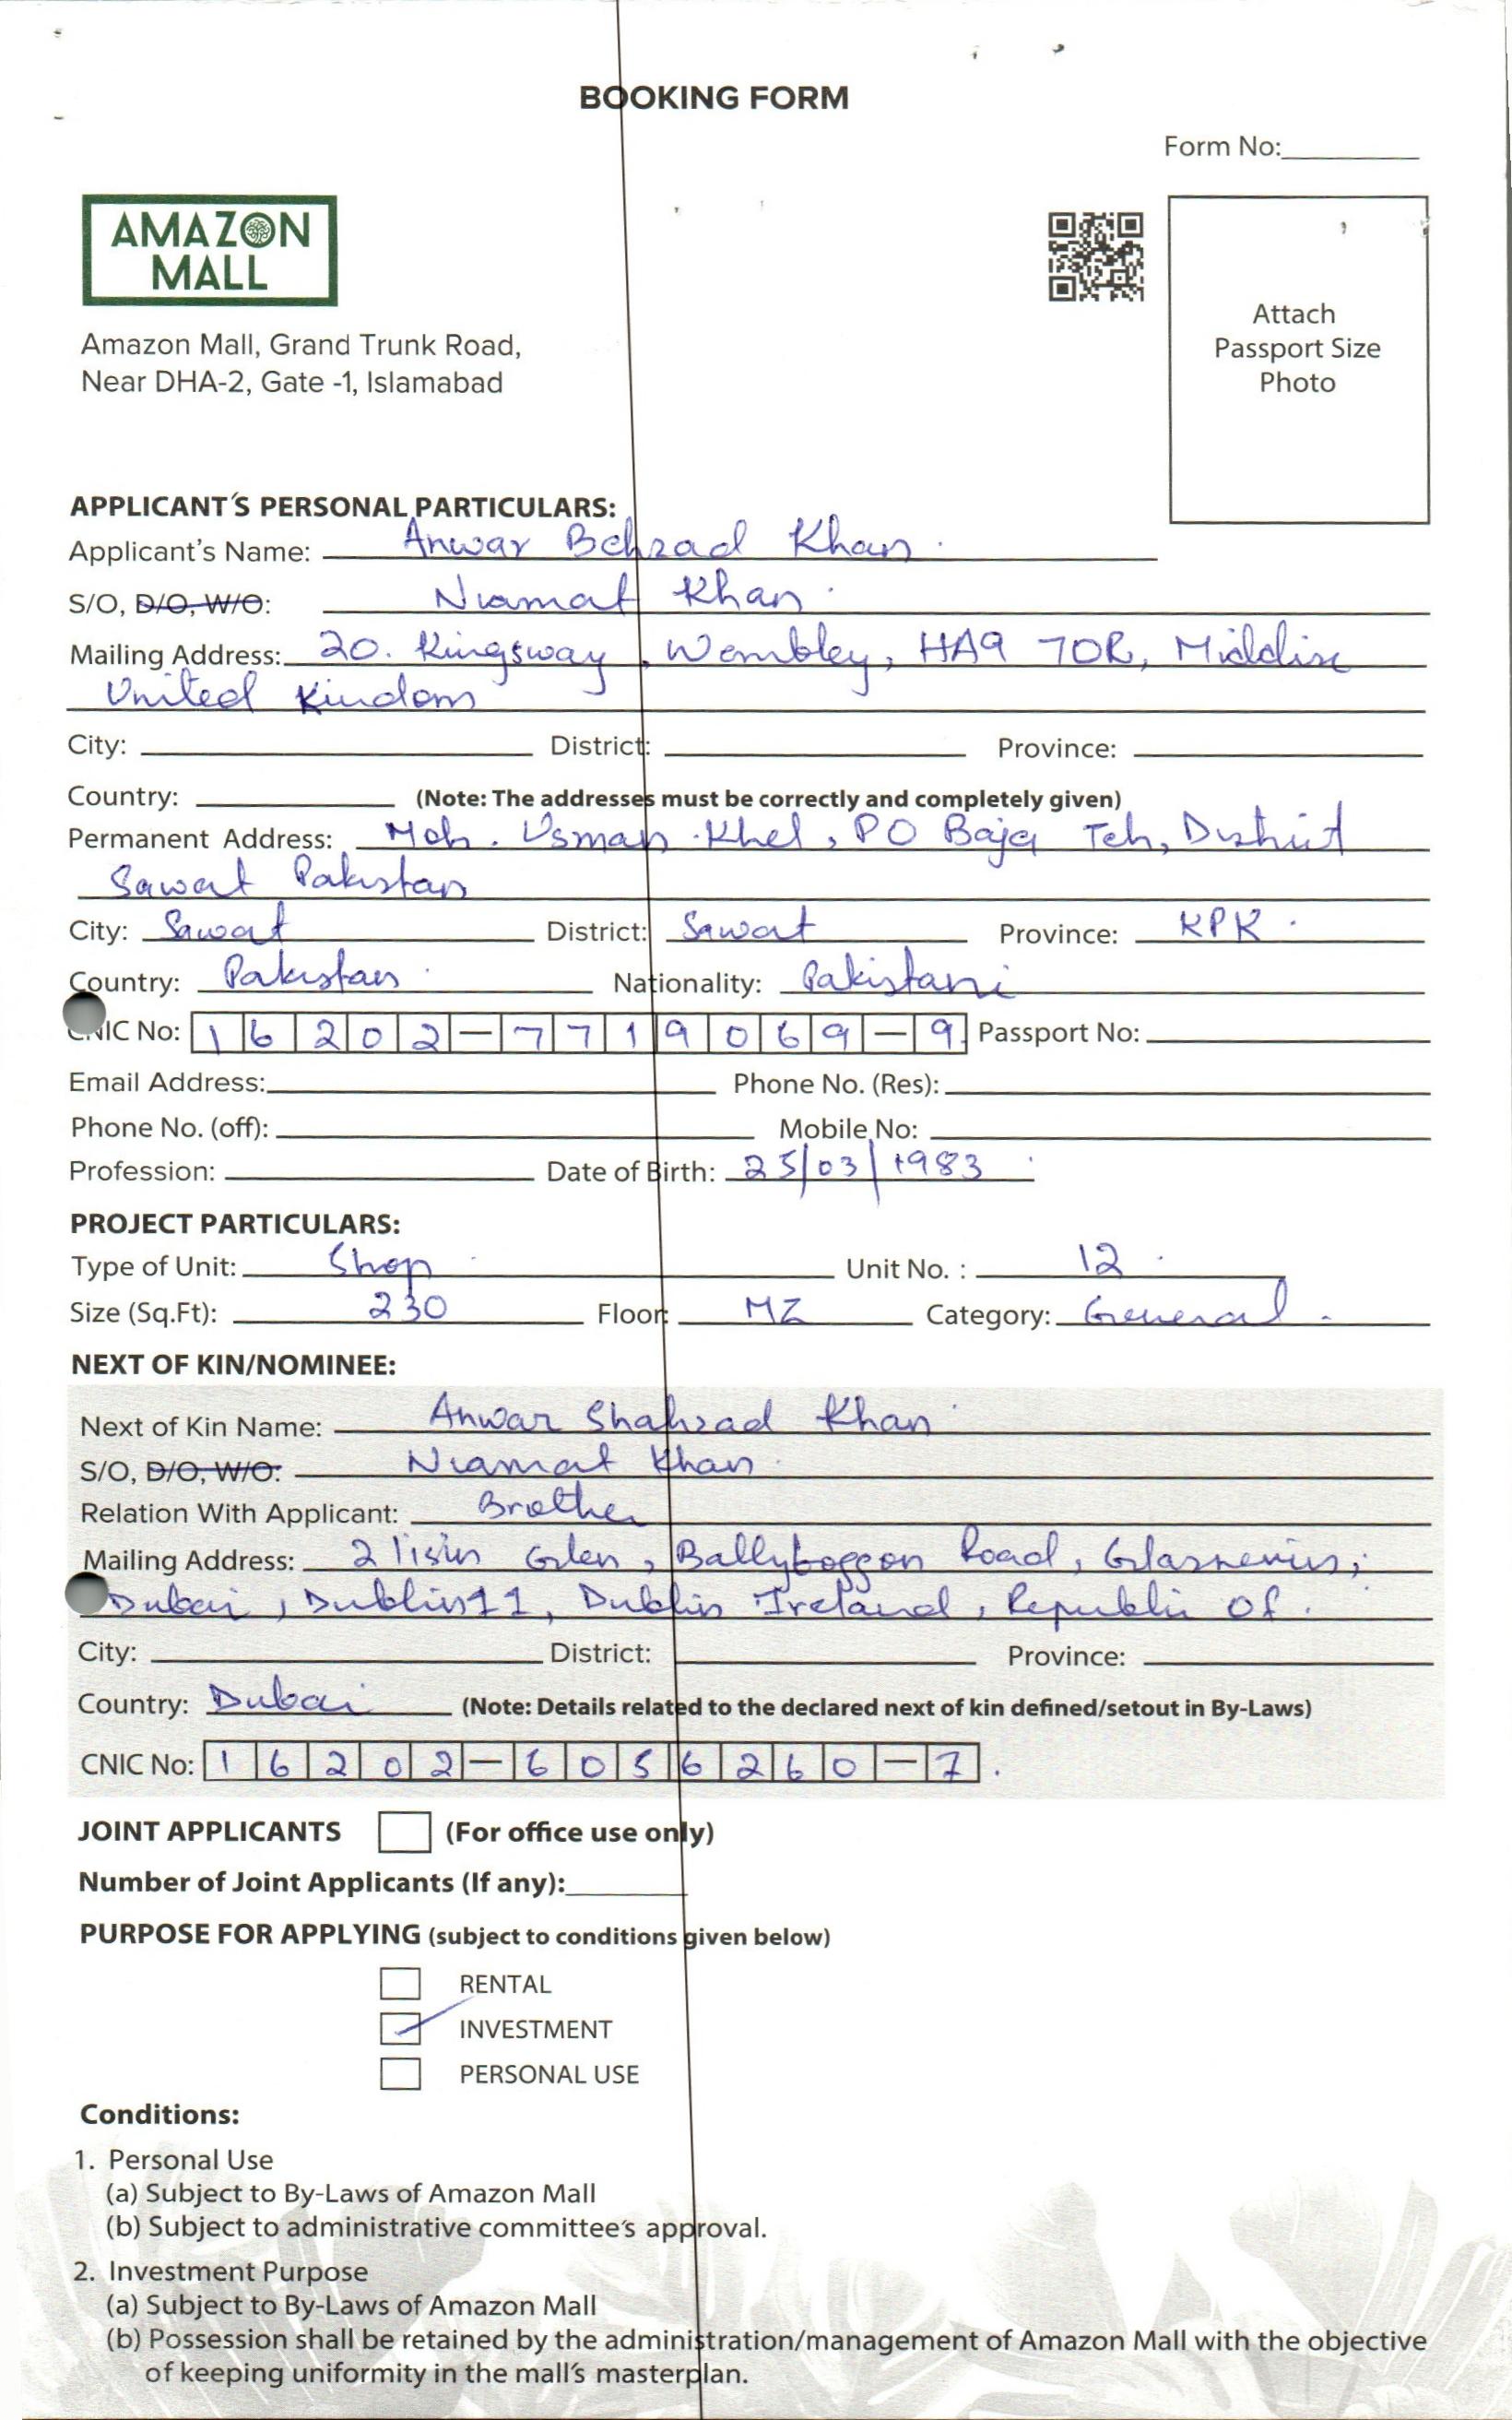 BOOKING FORM
Form No:
AMAZON
MALL
Attach
Passport Size
Photo
Amazon Mall, Grand Trunk Road,
Near DHA-2, Gate -1, Islamabad
APPLICANT´S PERSONAL PARTICULARS:
Applicant's Name: Anwar Behzad Khan
S/O, D/O, W/O: Niamat Khan
Mailing Address: 20. Kingsway, Wembley, HA9 7QR, Middlix
United Kindom
City: District: Province:
Country: (Note: The addresses must be correctly and completely given)
Permanent Address: Moh. Usman Khel, PO Baja Teh, District
Sawat Pakistan
City: Sawat District: Sawat Province: KPK
Country: Pakistan Nationality: Pakistani
CNIC No: 16202-7719069-9 Passport No:
Email Address: Phone No. (Res):
Phone No. (off): Mobile No:
Profession: Date of Birth: 25/03/1983
PROJECT PARTICULARS:
Type of Unit: Shop Unit No. : 12
Size (Sq.Ft): 230 Floor: MZ Category: General
NEXT OF KIN/NOMINEE:
Next of Kin Name: Anwar Shahzad Khan
S/O, D/O, W/O: Niamat Khan
Relation With Applicant: Brother
Mailing Address: 2 Glen, Ballyboggon Road,
Dubai, Dublin 11, Dublin Ireland, Republic Of.
City: District: Province:
Country: Dubai (Note: Details related to the declared next of kin defined/setout in By-Laws)
CNIC No: 16202-6056260-7
JOINT APPLICANTS (For office use only)
Number of Joint Applicants (If any):
PURPOSE FOR APPLYING (subject to conditions given below)
RENTAL
INVESTMENT
PERSONAL USE
Conditions:
1. Personal Use
(a) Subject to By-Laws of Amazon Mall
(b) Subject to administrative committee's approval.
2. Investment Purpose
(a) Subject to By-Laws of Amazon Mall
(b) Possession shall be retained by the administration/management of Amazon Mall with the objective
of keeping uniformity in the mall's masterplan.